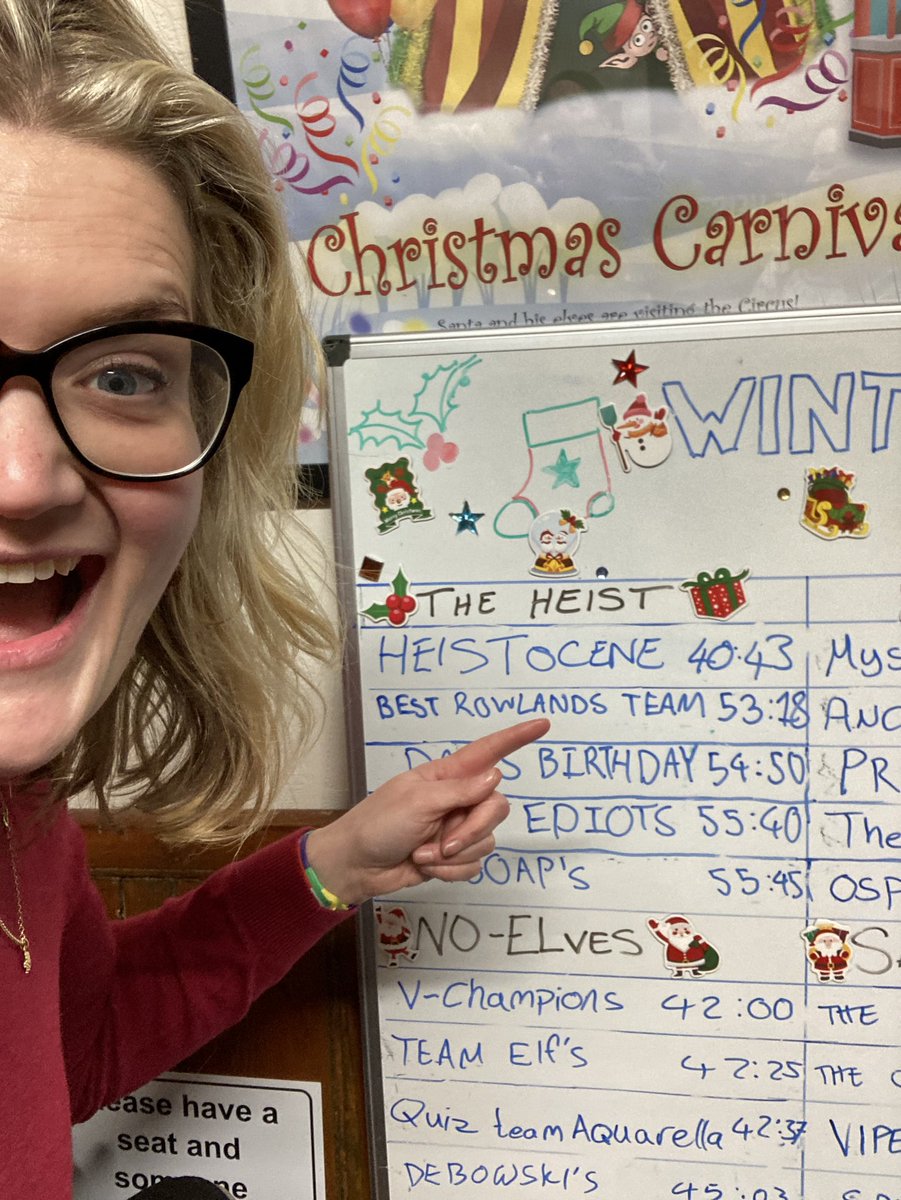 Christmas Carniva
Santa and his elves are visiting the Circus!
WINT
THE HEIST
HEISTOCENE 40:43
BEST ROWLANDS TEAM 53:18
BIRTHDAY 54:50
EDIOTS 55:40
OAP's 55:45
Mys
ANO
PR
The
OSP
NO-ELVES
V-Champions 42:00
TEAM Elf's 42:25
Quiz team Aquarella 42:37
DEBOWSKI's 45:03
S
THE
THE
VIPE
ease have a
seat and